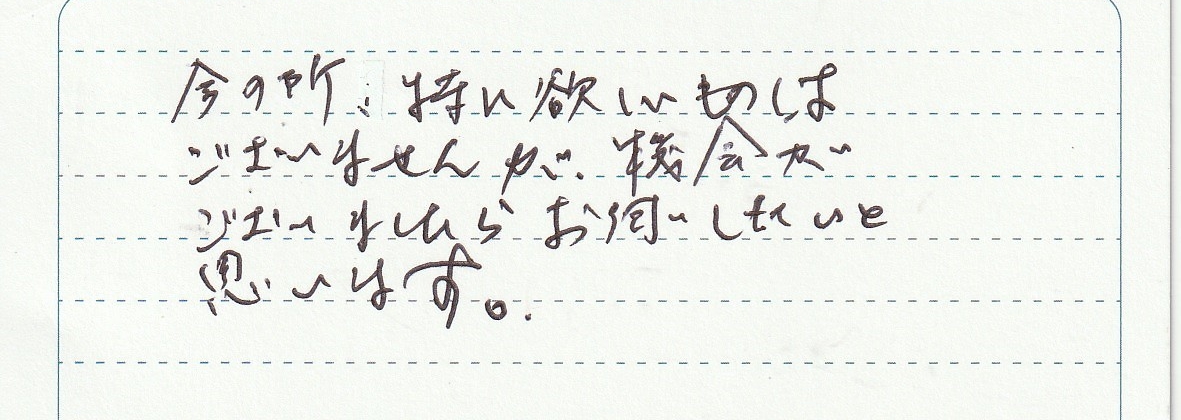 今の所、特に欲しいものは
ございませんが、機会が
ございましたらお伺いしたいと
思います。